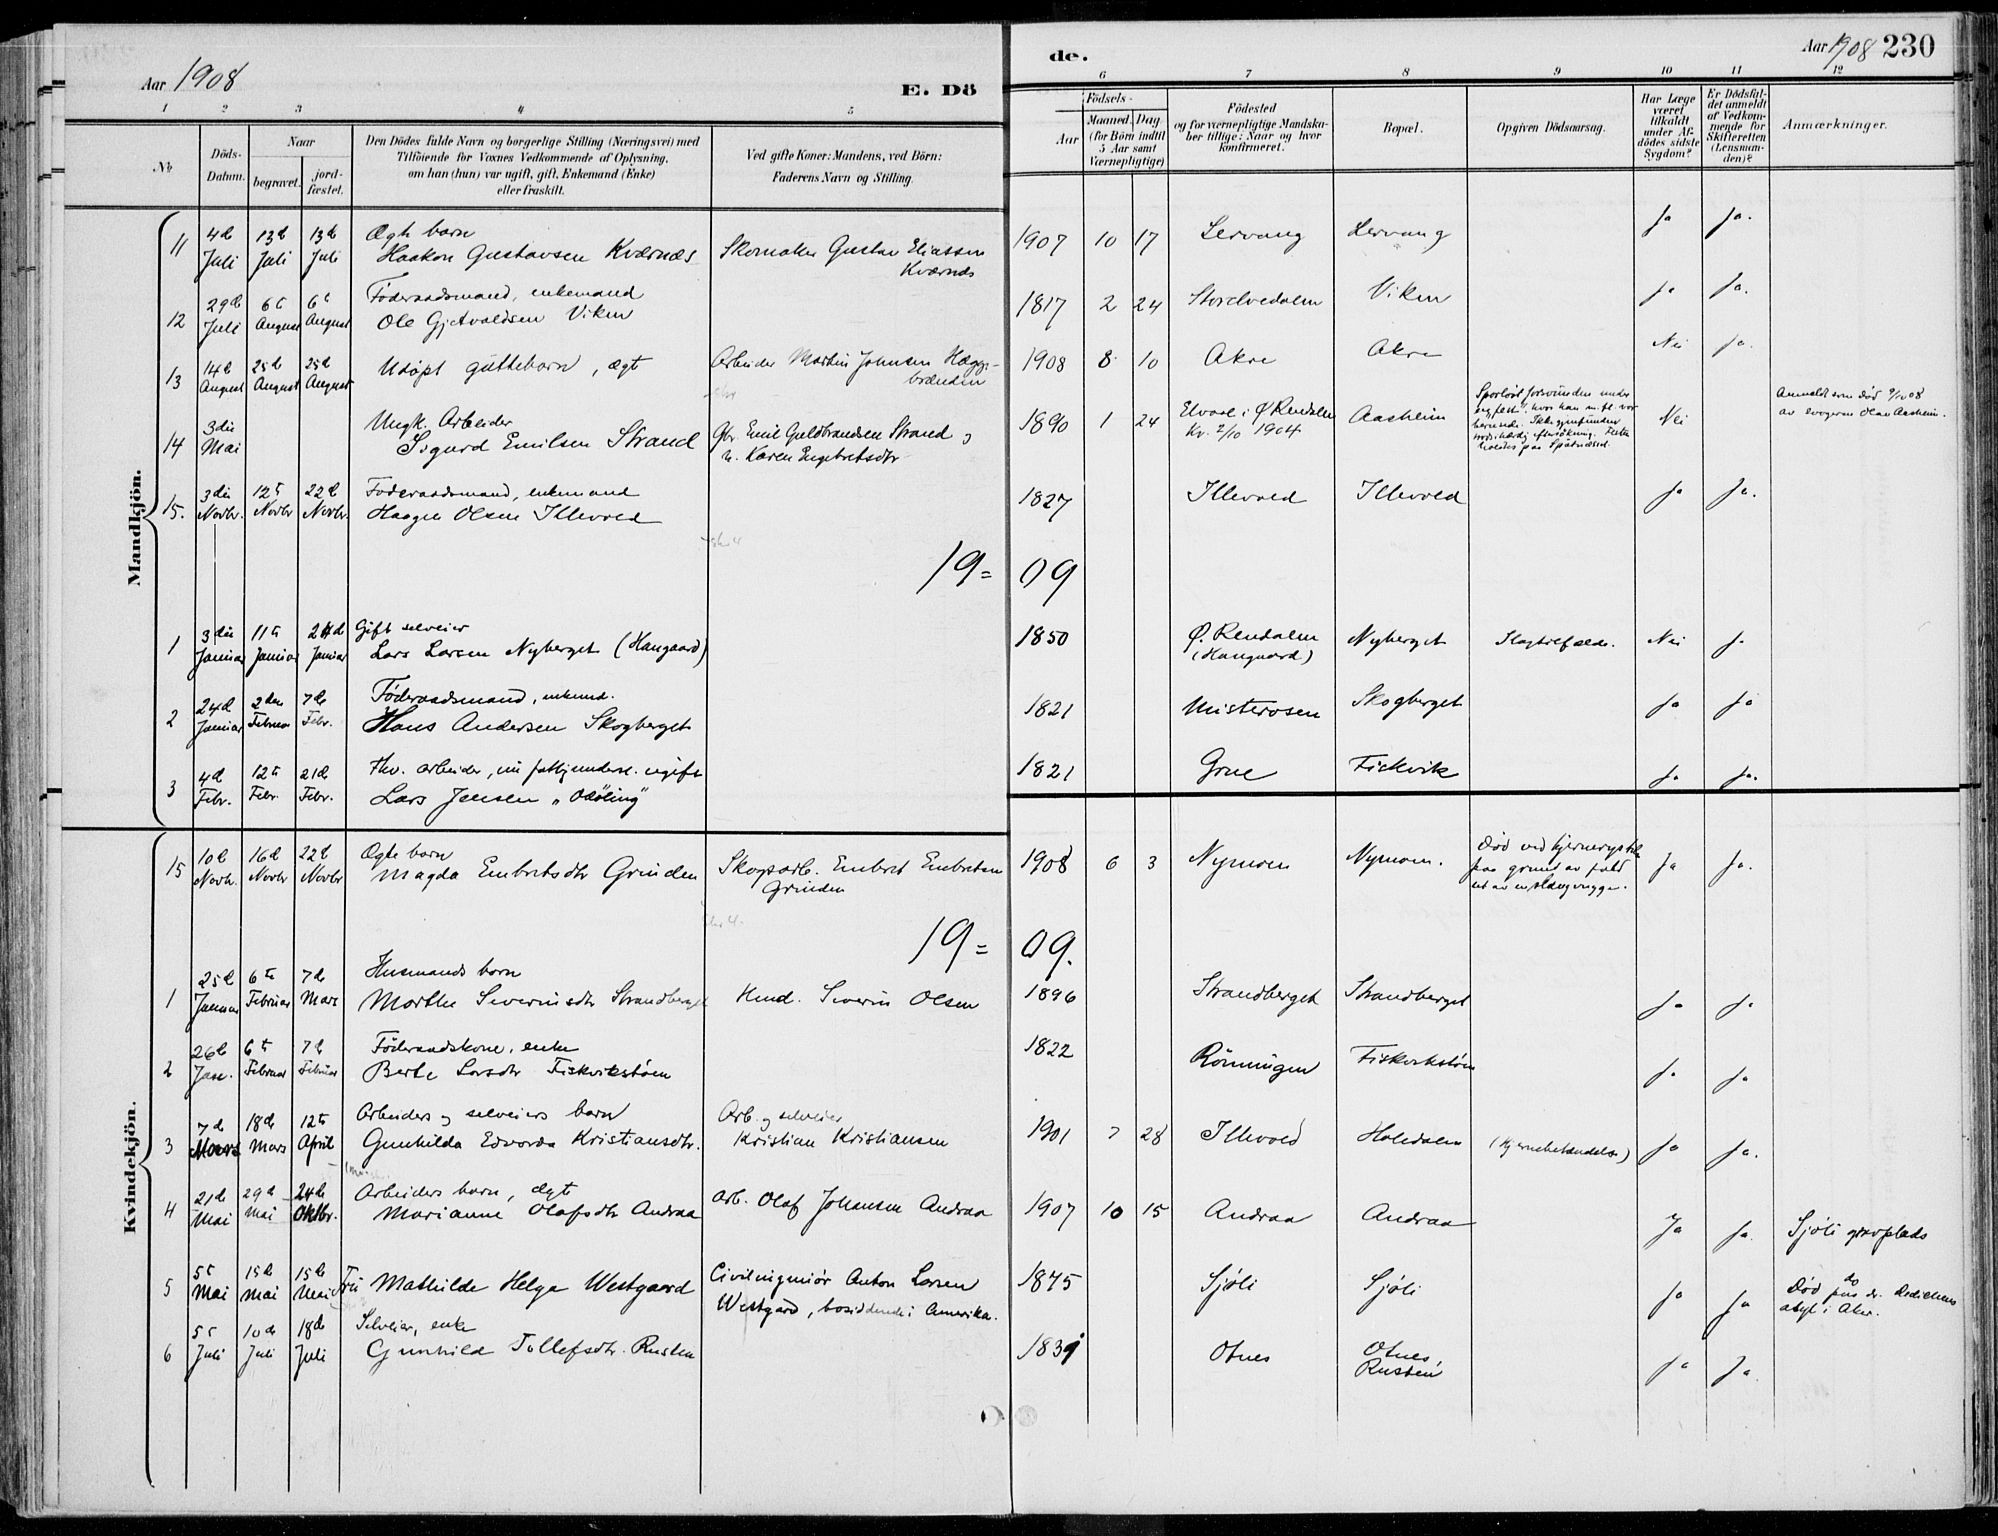 Aar 1908
E. Dö
de.
Aar 1908 230
1 2 3 4 5 6 7 8 9 10 11 12
No
Döds-Datum.
Naar
begravet.
jord-fæstet.
Den Dödes fulde Navn og borgerlige Stilling (Næringsvei) med
Tilföiende for Voxnes Vedkommende af Oplysning,
om han (hun) var ugift, gift, Enkemand (Enke)
eller fraskilt.
Ved gifte Koner: Mandens, ved Börn:
Faderens Navn og Stilling.
Födsels-
Aar
Maaned. Dag
(for Börn indtil
5 Aar samt
Værnepligtige)
Födested
og for værnepligtige Mandska-
ber tillige: Naar og hvor
konfirmeret.
Bopæl.
Opgiven Dödsaarsag.
Har Læge
været
tilkaldt
under Af-
dödes sidste
Sygdom?
Er Dödsfal-
det anmeldt
af Vedkom-
mende for
Skifteretten
(Lensman-
den)?
Anmærkninger.
Mandkjön.
11 4d Juli 13d Juli 13d Juli Ægte barn
Haakon Gustavsen Kværnæs Skomaker Gustav Eliassen Kværnæs 1907 10 17 Lervang Lervang Ja Ja.
12 29d Juli 6t August 6t August Föderaadsmand, enkemand
Ole Gjetvoldsen Viken 1817 2 24 Storelvedalen Viken Ja Ja.
13 14d August 25d August 25d August Udöpt guttebarn, ægt Arbeider Martin Johnsen Hægge-brænden 1908 8 10 Akre Akre Nei Ja.
14 3die Mai Ungk. Arbeider
Sigurd Emilsen Strand Gbr. Emil Guldbrandsen Strand og h. Karen Engebretsdtr 1890 1 24 Elvaal i Ø. Rendalen
Kv. 2/10 1904 Aasheim Sporløst forsvunden under
en "fest", hvor han m. fl. var
Ikke gjenfunden
Nei Anmeldt som död 9/10 08
av Olav Aasheim.
15. 3die Novbr. 12t Novbr 22d Novbr. Föderaadsmand, enkemand
Haagen Olsen Illevold 1827 Illevold Illevold Ja Ja.
19 = 09
1 3die Januar 11te Januar 24d Januar Gift selveier
Lars Larsen Nyberget (Haugaard) 1850 Ø. Rendalen
(Haugaard) Nyberget Slagtilfælde. Nei Ja
2 24d Januar 2den Februar 7d Febr. Föderaadsmand, enkemd.
Hans Andersen Skogberget 1821 Misterosen Skogberget Ja Ja
3 4d Febr. 12te Febr. 21d Febr. Fhv. arbeider, nu fattigunderst. ugift
Lars Jensen "Odöling" 1821 Grue Fiskvik Ja Ja.
Kvindekjön.
15 10d Novbr. 16d Novbr 22d Novbr Ægte barn
Magda Embretsdtr Grinden Skogsarb. Embret Embretsen
Grinden 1908 6 3 Nymoen Nymoen. Död ved hjernerystelse
paa grund av fald
ut av en slængvugge. Ja Ja.
19 = 09.
1 25d Januar 6te Februar 7de Mars Husmands barn
Marthe Severinsdtr Strandberget Hmd. Severin Olsen 1896 Strandberget Strandberget Ja Ja
2 26d Jan. 6t Februar 7d Februar Föderaadskone, enke
Berte Larsdtr Fiskvikstöen 1822 Rönningen Fiskvikstöen Ja Ja
3 7d Mars 18d Mars 12te April Arbeiders og selveiers barn
Gunhilda Edvarda Kristiansdtr. Arb. og selveier
Kristian Kristiansen 1901 7 28 Illevold Holedalen (Hjernebetændelse) Ja Ja.
4 21d Mai 29d Mai 24de Oktbr. Arbeiders barn, ægt
Marianne Olafsdtr Andraa Arb. Olaf Johansen Andraa 1907 10 15 Andraa Andraa Ja Ja. Sjöli gravplads
5 5t Mai 15de Mai 15de Mai Fru Mathilde Helga Westgaard Civilingeniör Anton Larsen
Westgard, bosiddende i Amerika. 1875 Sjöli Sjöli Ja Ja Död paa dr. Dedichens
asyl i Aker.
6 5t Juli 10de Juli 18de Juli Selveier, enke
Gunhild Tollefsdtr. Rusten 1831 Otnes Otnes,
Rusten Ja Ja